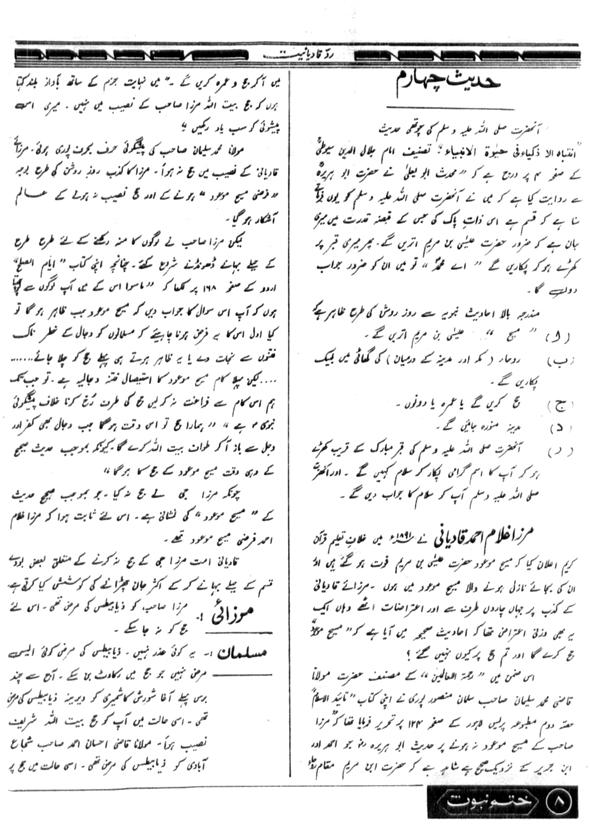 ردِّ قادیانیت
حدیث چہارم
آنحضرت صلی اللہ علیہ وسلم کی چوتھی حدیث
"انتباہ الاذکیاء فی حیٰوۃ الانبیاء" تصنیف امام جلال الدین سیوطیؒ
کے صفحہ ۴ پر درج ہے کہ "محدث ابو یعلیٰ نے حضرت ابو ہریرہؓ
سے روایت کیا ہے کہ میں نے آنحضرت صلی اللہ علیہ وسلم کو یوں فرماتے
سنا ہے کہ قسم ہے اس ذات پاک کی جس کے قبضہ قدرت میں میری
جان ہے کہ ضرور حضرت عیسیٰ بن مریم اتریں گے۔ پھر میری قبر پر
کھڑے ہو کر پکاریں گے "اے محمدؐ" تو میں ان کو ضرور جواب
دوں گا۔
مندرجہ بالا احادیث نبویہ سے روز روشن کی طرح ظاہر ہے کہ
(ا) "مسیح" .... عیسیٰ بن مریم اتریں گے۔
(ب) روحاء (مکہ اور مدینہ کے درمیان) کی گھاٹی میں لبیک
پکاریں گے۔
(ج) حج کریں گے یا عمرہ یا دونوں۔
(د) مدینہ منورہ جائیں گے۔
(ر) آنحضرت صلی اللہ علیہ وسلم کی قبر مبارک کے قریب کھڑے
ہو کر آپ کا اسم گرامی پکار کو سلام کہیں گے۔ اور آنحضرت
صلی اللہ علیہ وسلم آپ کو سلام کا جواب دیں گے۔
مرزا غلام احمد قادیانی نے ۱۸۹۱ء میں خلاف تعلیم قرآن
کریم اعلان کیا کہ مسیح موعود حضرت عیسیٰ بن مریم فوت ہو گئے ہیں اور
ان کی بجائے نازل ہونے والا مسیح موعود میں ہوں۔ مرزائے قادیانی
کے کذب پر جہاں چاروں طرف سے اور اعتراضات اٹھے وہاں ایک
یہ بھی وزنی اعتراض تھا کہ احادیث صحیحہ میں آیا ہے کہ "مسیح موعودؑ
حج کرے گا اور تم حج پر کیوں نہیں گئے؟
اس ضمن میں "رحمۃ للعالمینؐ" کے مصنف حضرت مولانا
قاضی محمد سلیمان صاحب سلمان منصور پوری نے اپنی کتاب "تائید الاسلام"
حصہ دوم مطبوعہ پریس لاہور کے صفحہ ۱۲۴ پر تحریر فرمایا تھا کہ "مرزا
صاحب کے مسیح موعود نہ ہونے پر حدیث ابو ہریرہ رضؓ جو احمد اور
ابن جریر کے نزدیک صحیح ہے شاہد ہے کہ حضرت ابن مریم مقام روحاء
میں آ کر حج و عمرہ کریں گے۔" میں نہایت جزم کے ساتھ بآواز بلند کہتا
ہوں کہ حج بیت اللہ مرزا صاحب کے نصیب میں نہیں۔ میری اس
پیشگوئی کو سب یاد رکھیں"
مولانا محمد سلیمان صاحب کی پیشگوئی حرف بحرف پوری ہوئی۔ مرزائے
قادیانی کے نصیب میں حج نہ ہوا۔ مرزا کا کذب روز روشن کی طرح بوجہ
"فرضی مسیح موعود" ہونے کے اور حج نصیب نہ ہونے کے عالم
آشکار ہو گیا۔
لیکن مرزا صاحب نے لوگوں کا منہ رکھنے کے لئے طرح طرح
کے حیلے بہانے ڈھونڈنے شروع کئے۔ چنانچہ اپنی کتاب "ایام الصلح"
اردو کے صفحہ ۱۶۸ پر لکھا کہ "ماسوا اس کے میں آپ لوگوں سے پوچھتا
ہوں کہ آپ اس سوال کا جواب دیں کہ مسیح موعود جب ظاہر ہو گا تو
کیا اول اس کا یہ فرض ہونا چاہیئے کہ مسلمانوں کو دجال کے خطر ناک
فتنوں سے نجات دے یا یہ ظاہر ہوتے ہی پہلے حج کو چلا جائے ......
.... لیکن پہلا کام مسیح موعود کا استیصال فتنہ دجالیہ ہے۔ تو جب تک
ہم اس کام سے فراغت نہ کر لیں حج کی طرف رُخ کرنا خلاف پیشگوئی
نبوی م ہے" "ہمارا حج تو اس وقت ہو گا جب دجال بھی کفر اور
دجل سے باز آ کر طواف بیت اللہ کرے گا۔ کیونکہ بموجب حدیث صحیح
کے وہی وقت مسیح موعود کے حج کا ہو گا"
چونکہ مرزا جی نے حج نہ کیا۔ جو بموجب صحیح حدیث
کے "مسیح موعود" کی نشانی ہے۔ اس لئے ثابت ہوا کہ مرزا غلام
احمد فرضی مسیح موعود تھے۔
قادیانی امت مرزا جی کے حج نہ کرنے کے متعلق بعض بودے
قسم کے حیلے بہانے کر کے اکثر جان چھڑانے کی کوشش کیا کرتی ہے
مرزائی :۔ مرزا صاحب کو ذیابیطس کی مرض تھی۔ اس لئے
حج کو نہ جا سکے۔
مسلمان :۔ یہ کوئی عذر نہیں۔ ذیابیطس کی مرض کوئی ایسی
مرض نہیں جو حج میں رکاوٹ بن سکے۔ آج سے چند
برس پہلے آغا شورش کاشمیری کو دیرینہ ذیابیطس کی مرض
تھی۔ اسی حالت میں آپ کو حج بیت اللہ شریف
نصیب ہوا۔ مولانا قاضی احسان احمد صاحب شجاع
آبادی کو ذیابیطس کی مرض تھی۔ اسی حالت میں حج پر
ختم نبوت ۸